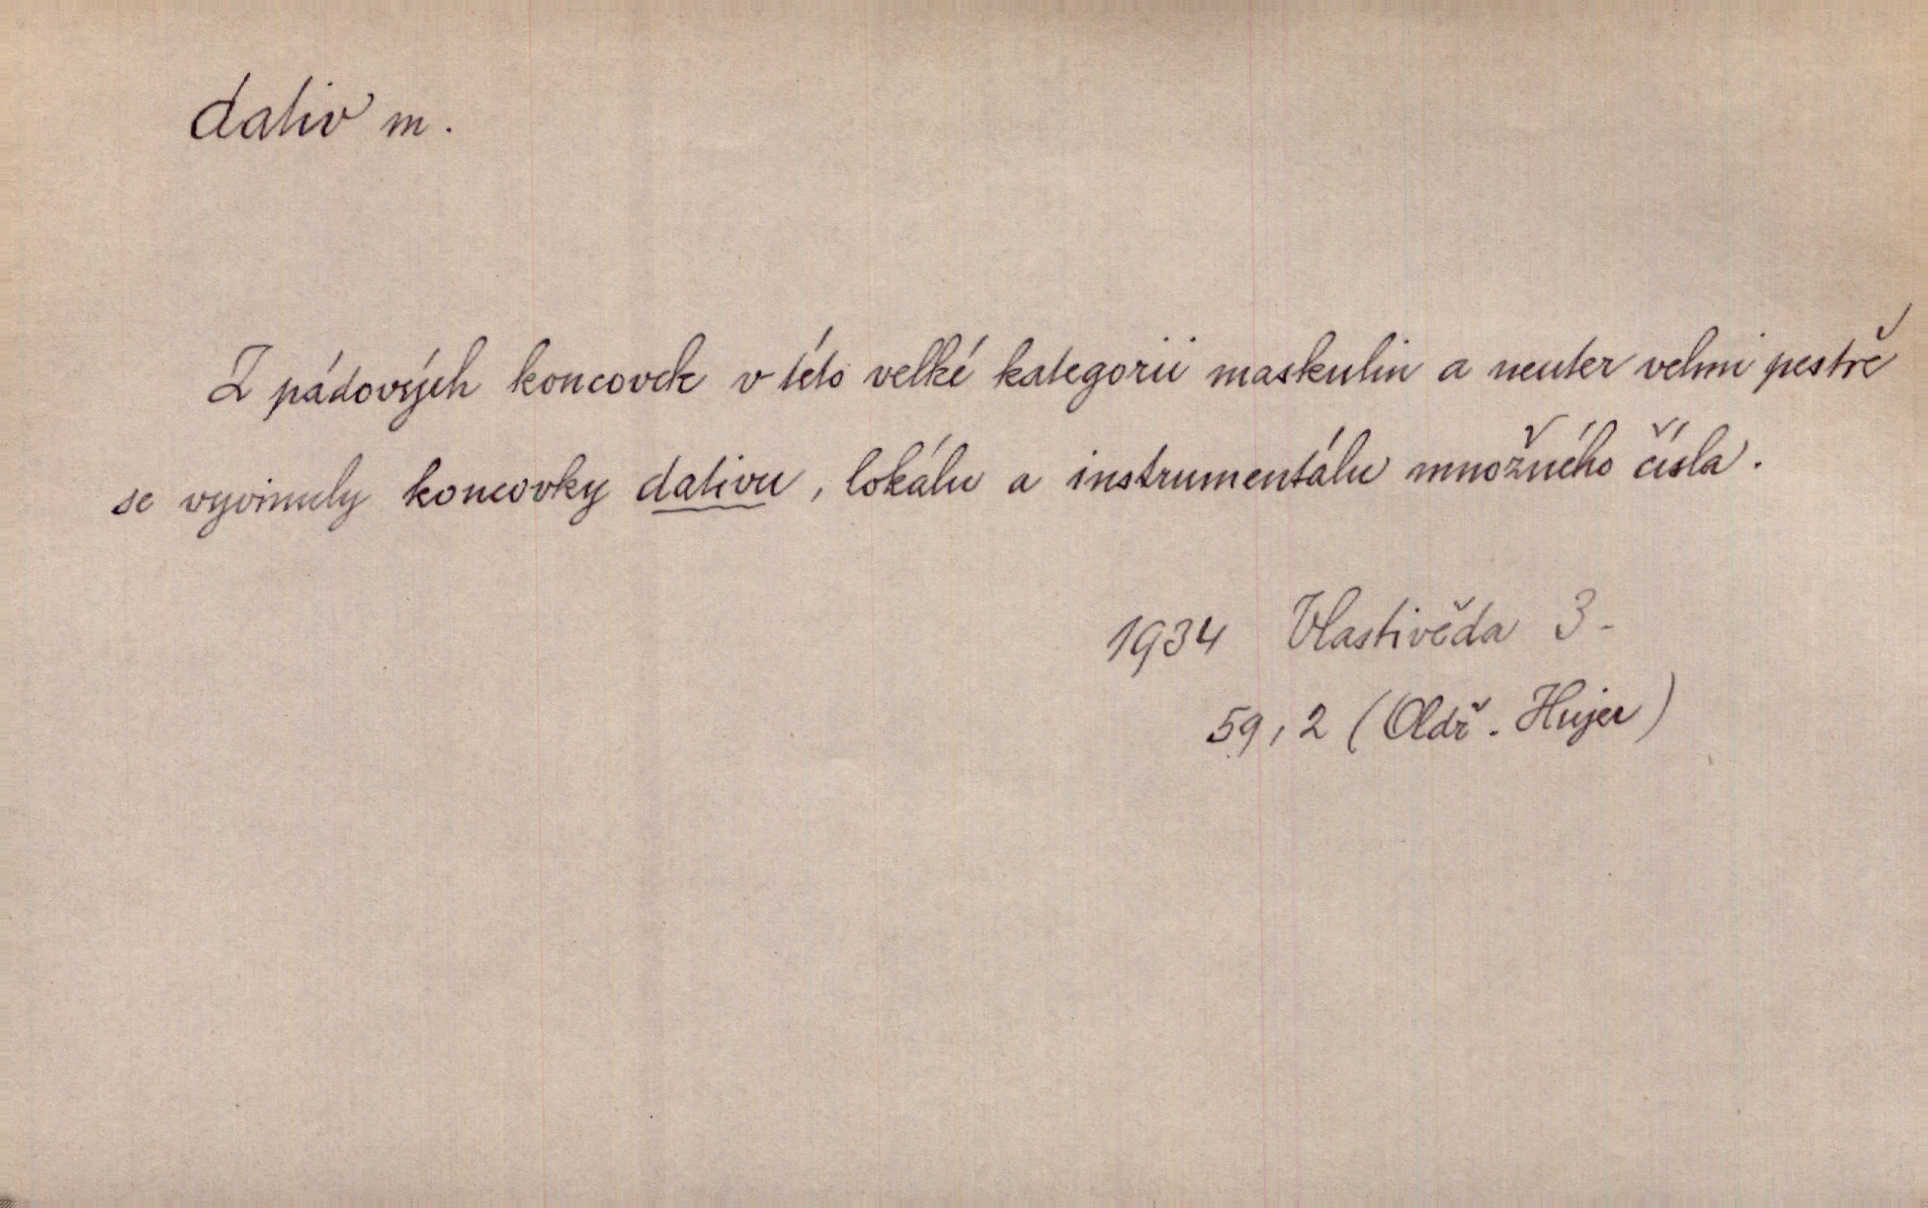 dativ m.
Z pádových koncovek v této velké kategorii maskulin a neuter velmi pestře
se vyvinuly koncovky dativu, lokálu a instrumentálu množného čísla.
1934 Vlastivěda 3-
59,2 (Oldř. Hujer)